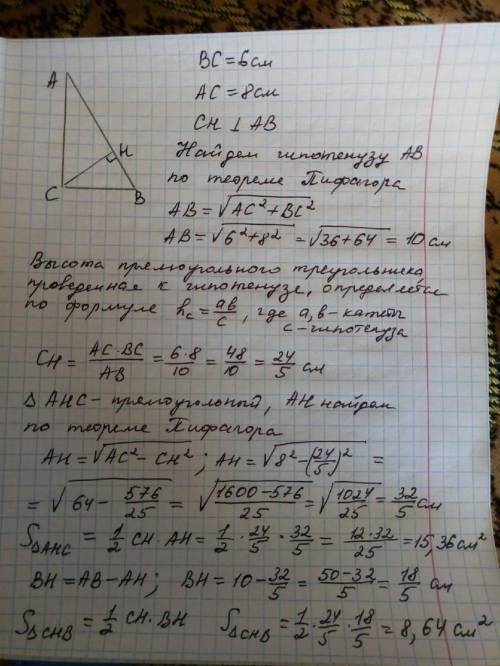 BC = 6 см
A
AC = 8 см
CH ⊥ AB
H
Найдем гипотенузу AB
C
B
по теореме Пифагора
AB = √(AC² + BC²)
AB = √(6² + 8²) = √(36 + 64) = 10 см
Высота прямоугольного треугольника,
проведенная к гипотенузе, определяется
по формуле h_c = ab/c, где a, b - катеты
c - гипотенуза
CH = AC · BC/AB = 6 · 8/10 = 48/10 = 24/5 см
Δ AHC - прямоугольный, AH найдем
по теореме Пифагора
AH = √(AC² - CH²); AH = √(8² - (24/5)²) =
= √(64 - 576/25) = √((1600 - 576)/25) = √(1024/25) = 32/5 см
S_ΔAHC = 1/2 CH · AH = 1/2 · 24/5 · 32/5 = 12 · 32/25 = 15,36 см²
BH = AB - AH; BH = 10 - 32/5 = (50 - 32)/5 = 18/5 см
S_ΔCHB = 1/2 CH · BH S_ΔCHB = 1/2 · 24/5 · 18/5 = 8,64 см²